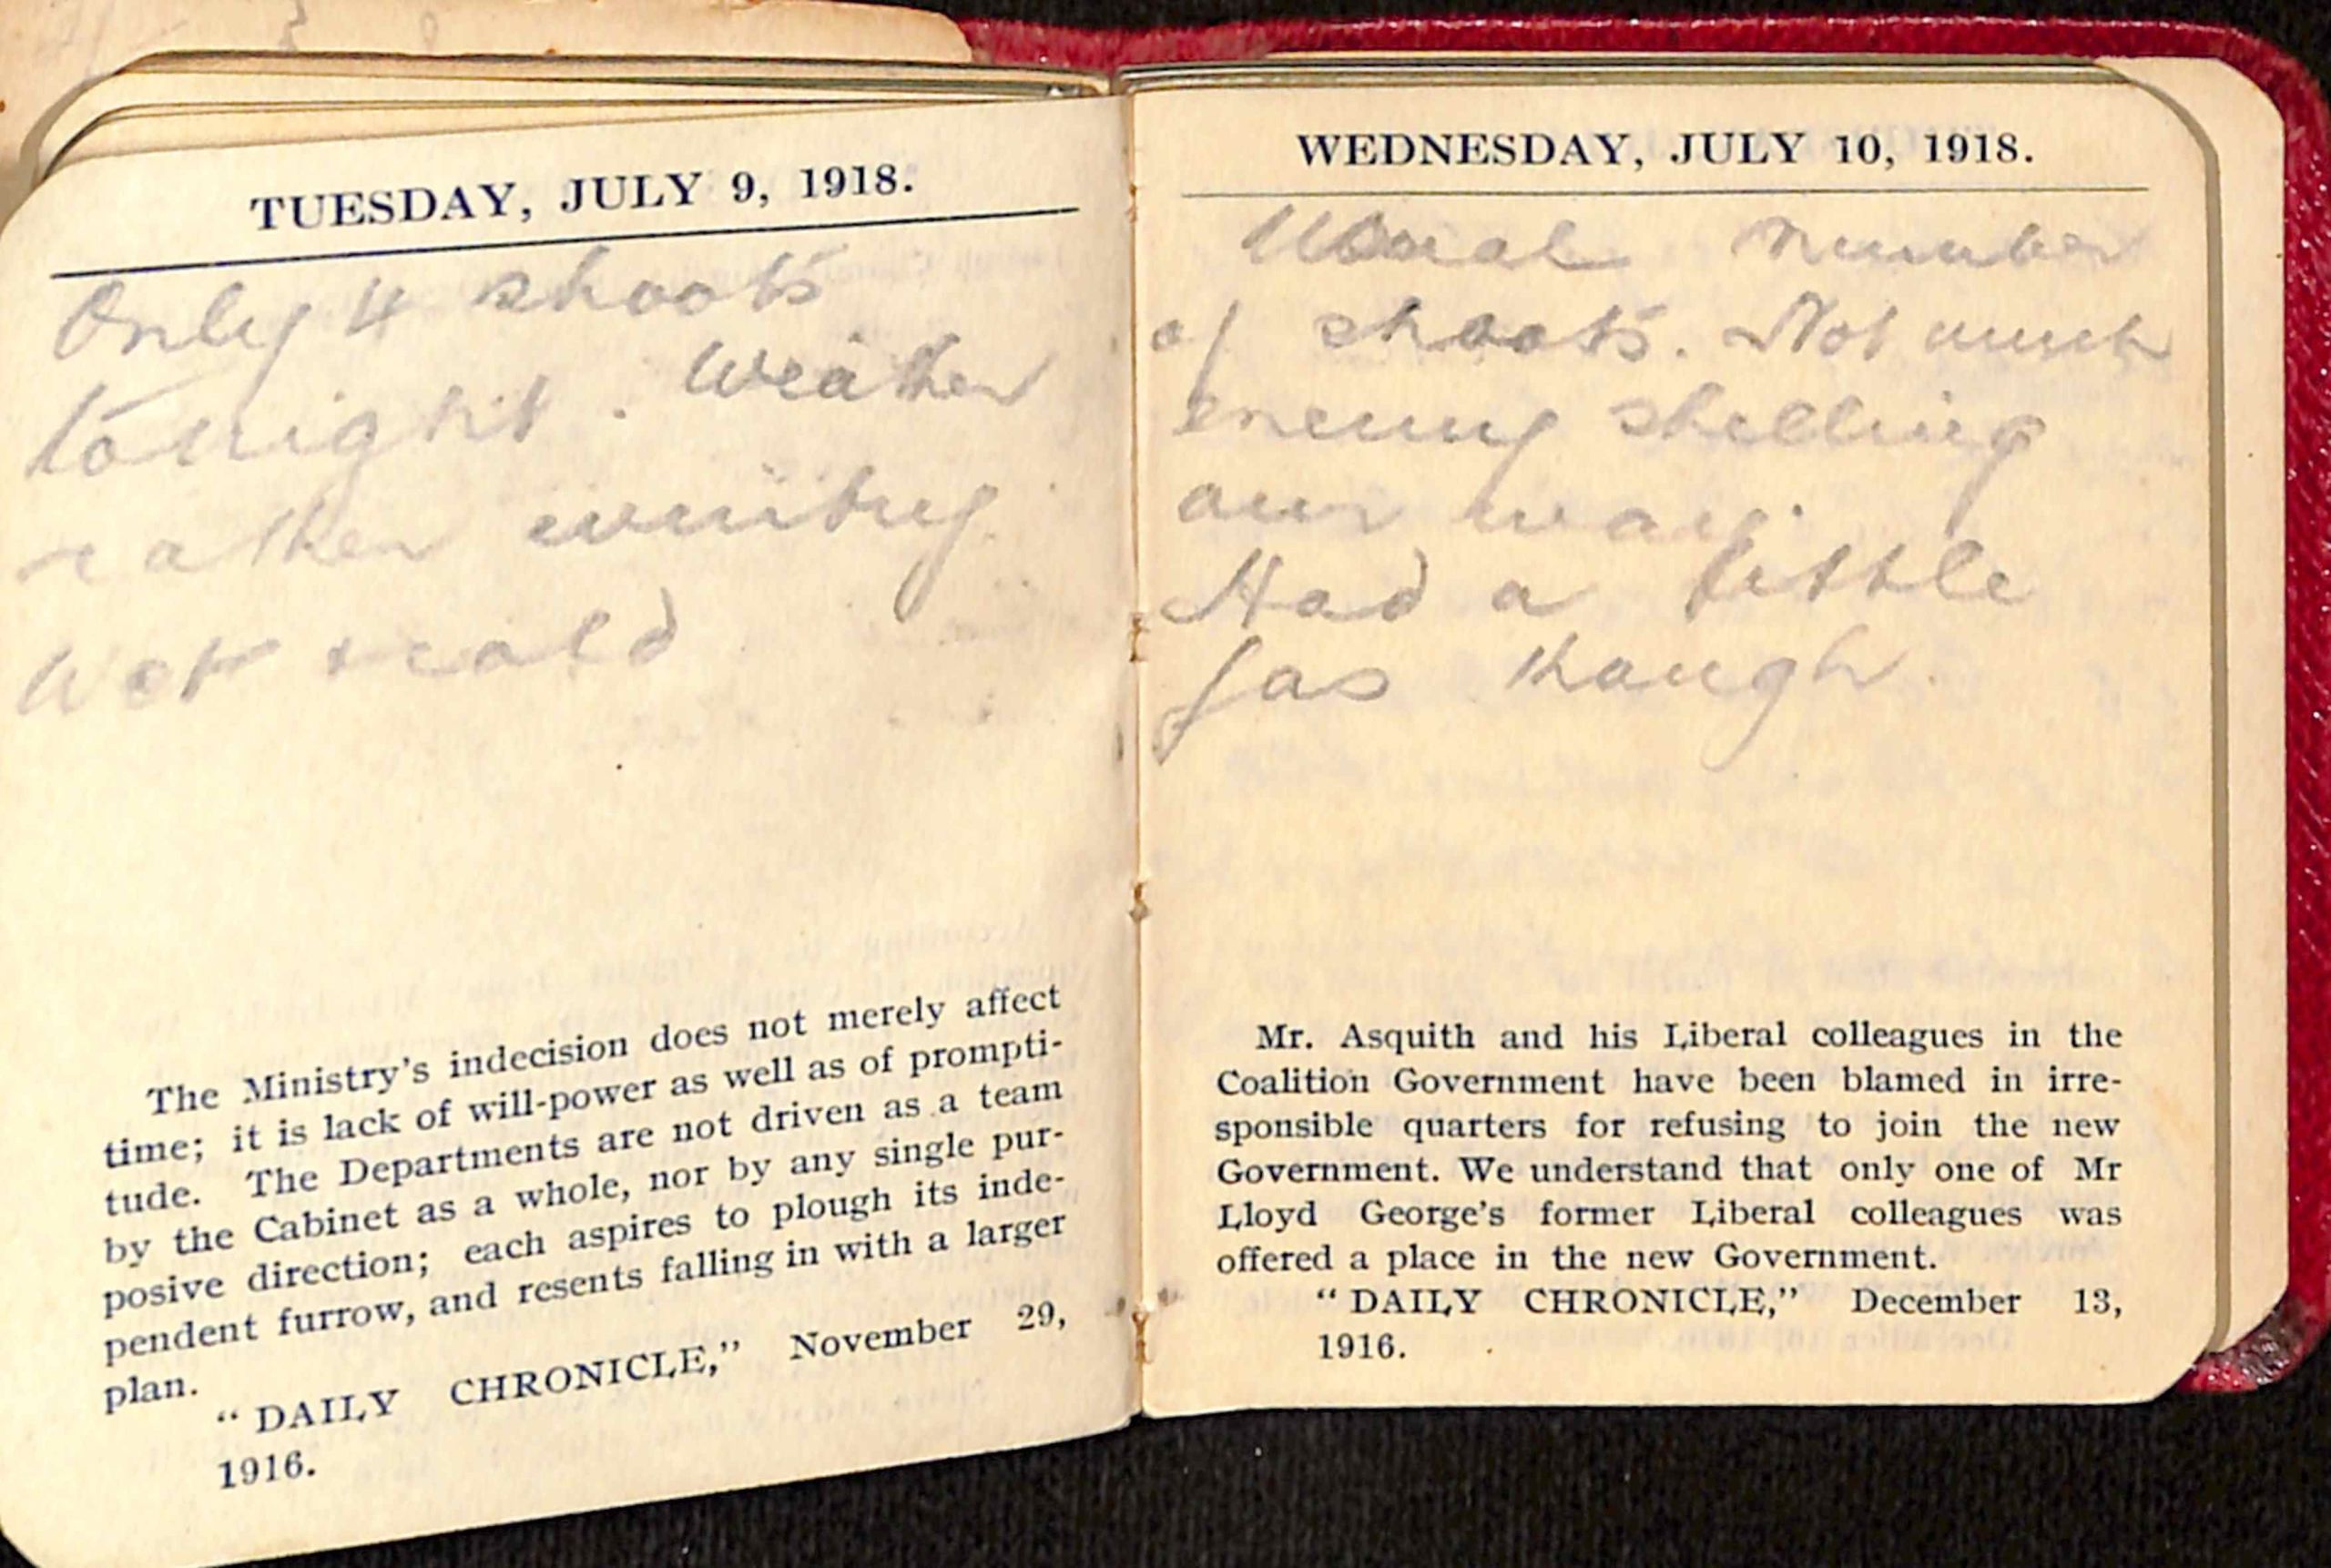 TUESDAY, JULY 9, 1918.
Only 4 shoots
tonight. Weather
rather wintry
Wet & cold
The Ministry's indecision does not merely affect
time; it is lack of will-power as well as of prompti-
tude. The Departments are not driven as a team
by the Cabinet as a whole, nor by any single pur-
posive direction; each aspires to plough its inde-
pendent furrow, and resents falling in with a larger
plan.
"DAILY CHRONICLE," November 29,
1916.
WEDNESDAY, JULY 10, 1918.
Usual number
of shoots. Not much
enemy shelling
our way.
Had a little
gas though.
Mr. Asquith and his Liberal colleagues in the
Coalition Government have been blamed in irre-
sponsible quarters for refusing to join the new
Government. We understand that only one of Mr
Lloyd George's former Liberal colleagues was
offered a place in the new Government.
"DAILY CHRONICLE," December 13,
1916.